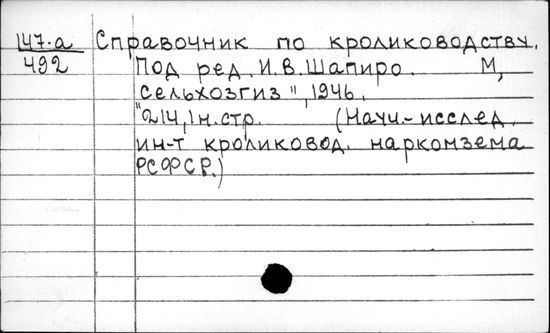 147-а Справочник по кролиководству.
492 Под ред. И.В.Шапиро. М,
"Сельхозгиз", 1946.
214, 1 н.стр. (Научн.-исслед.
ин-т кроликовод. наркомзема
РСФСР.)